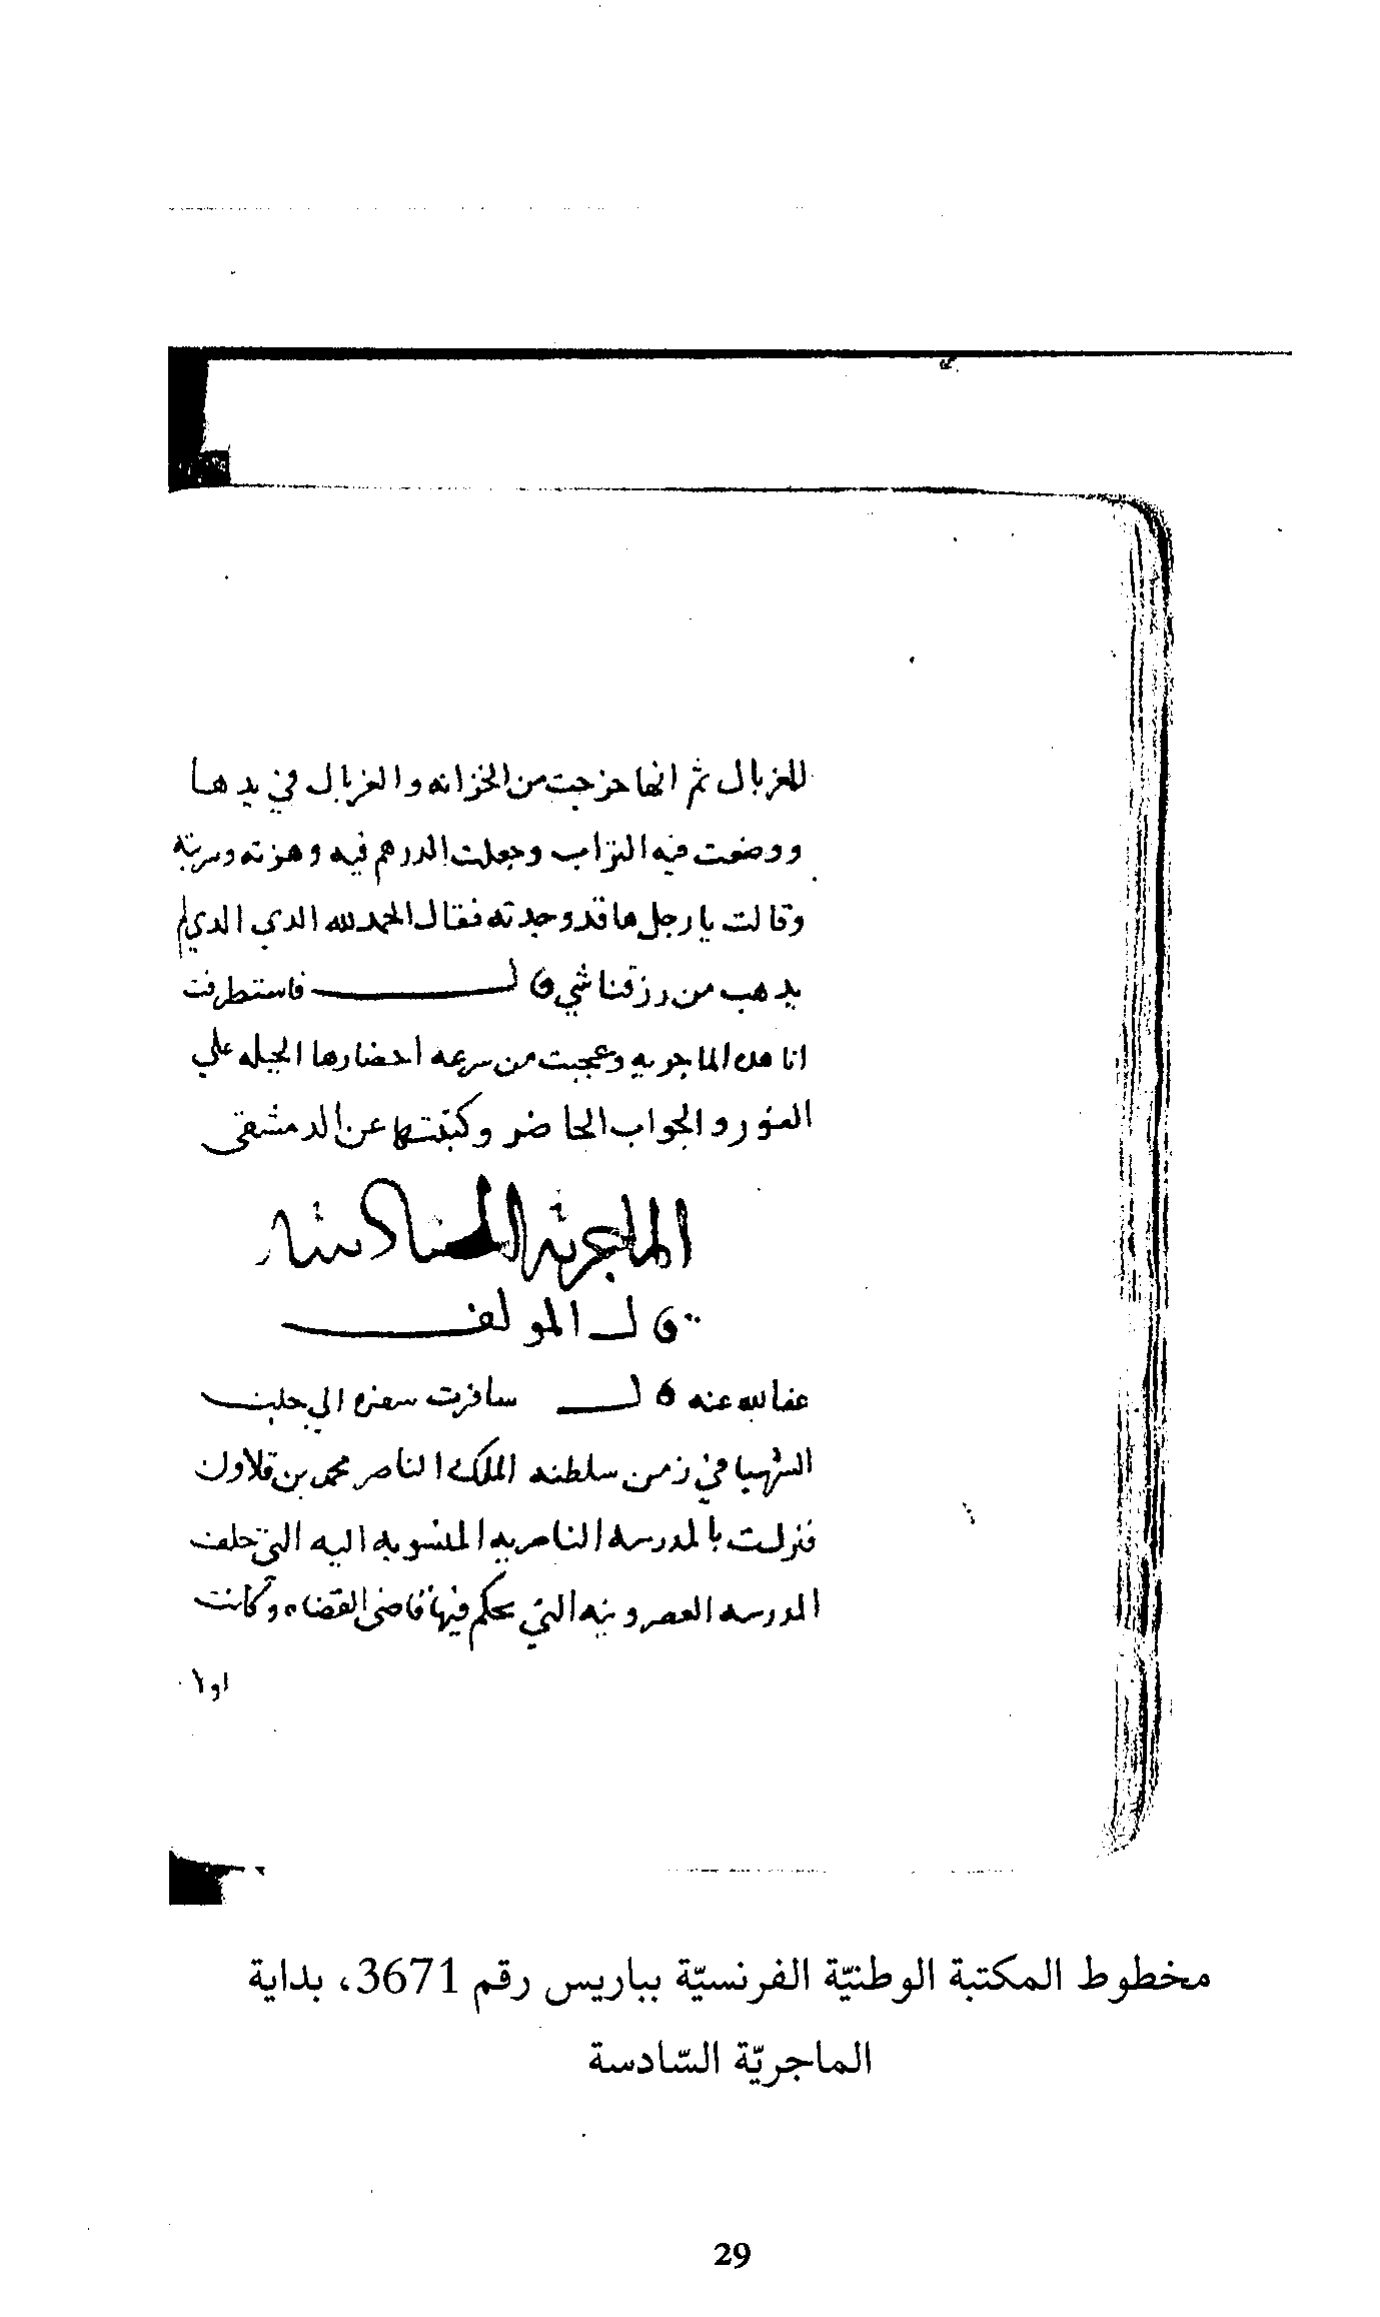 للغربال ثم انها خرجت من الخزانه والغربال في يدها
ووضعت فيه التراب وجعلت الدرهم فيه وهزته وسرته
وقالت يا رجل ها قد وجدته فقال الحمد لله الدي الدي لم
يدهب من رزقنا شي قال فاستطرفت
انا هده الماجريه وعجبت من سرعه احضارها الحيله علي
الفور والجواب الحاضر وكتبتها عن الدمشقي
الماجريه السادسه
قال المولف
عفا الله عنه قال سافرت سفره الي حلب
الشهبا في زمن سلطنه الملك الناصر محمد بن قلاون
فنزلت بالمدرسه الناصريه المنسوبه اليه التي خلف
المدرسه العصرونيه التي يحكم فيها قاضي القضاه وكانت
اولا
مخطوط المكتبة الوطنيّة الفرنسيّة بباريس رقم 3671، بداية
الماجريّة السّادسة
29